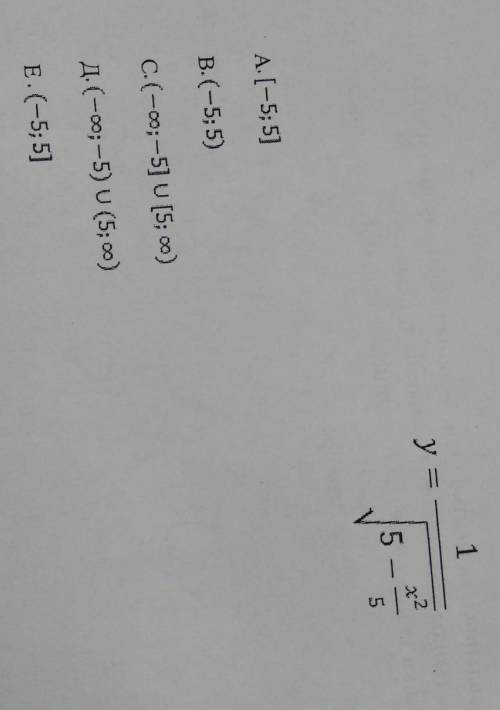 y = \frac{1}{\sqrt{5 - \frac{x^2}{5}}}
A. [−5; 5]
B. (−5; 5)
C. (−∞; −5] ∪ [5; ∞)
Д. (−∞; −5) ∪ (5; ∞)
E . (−5; 5]